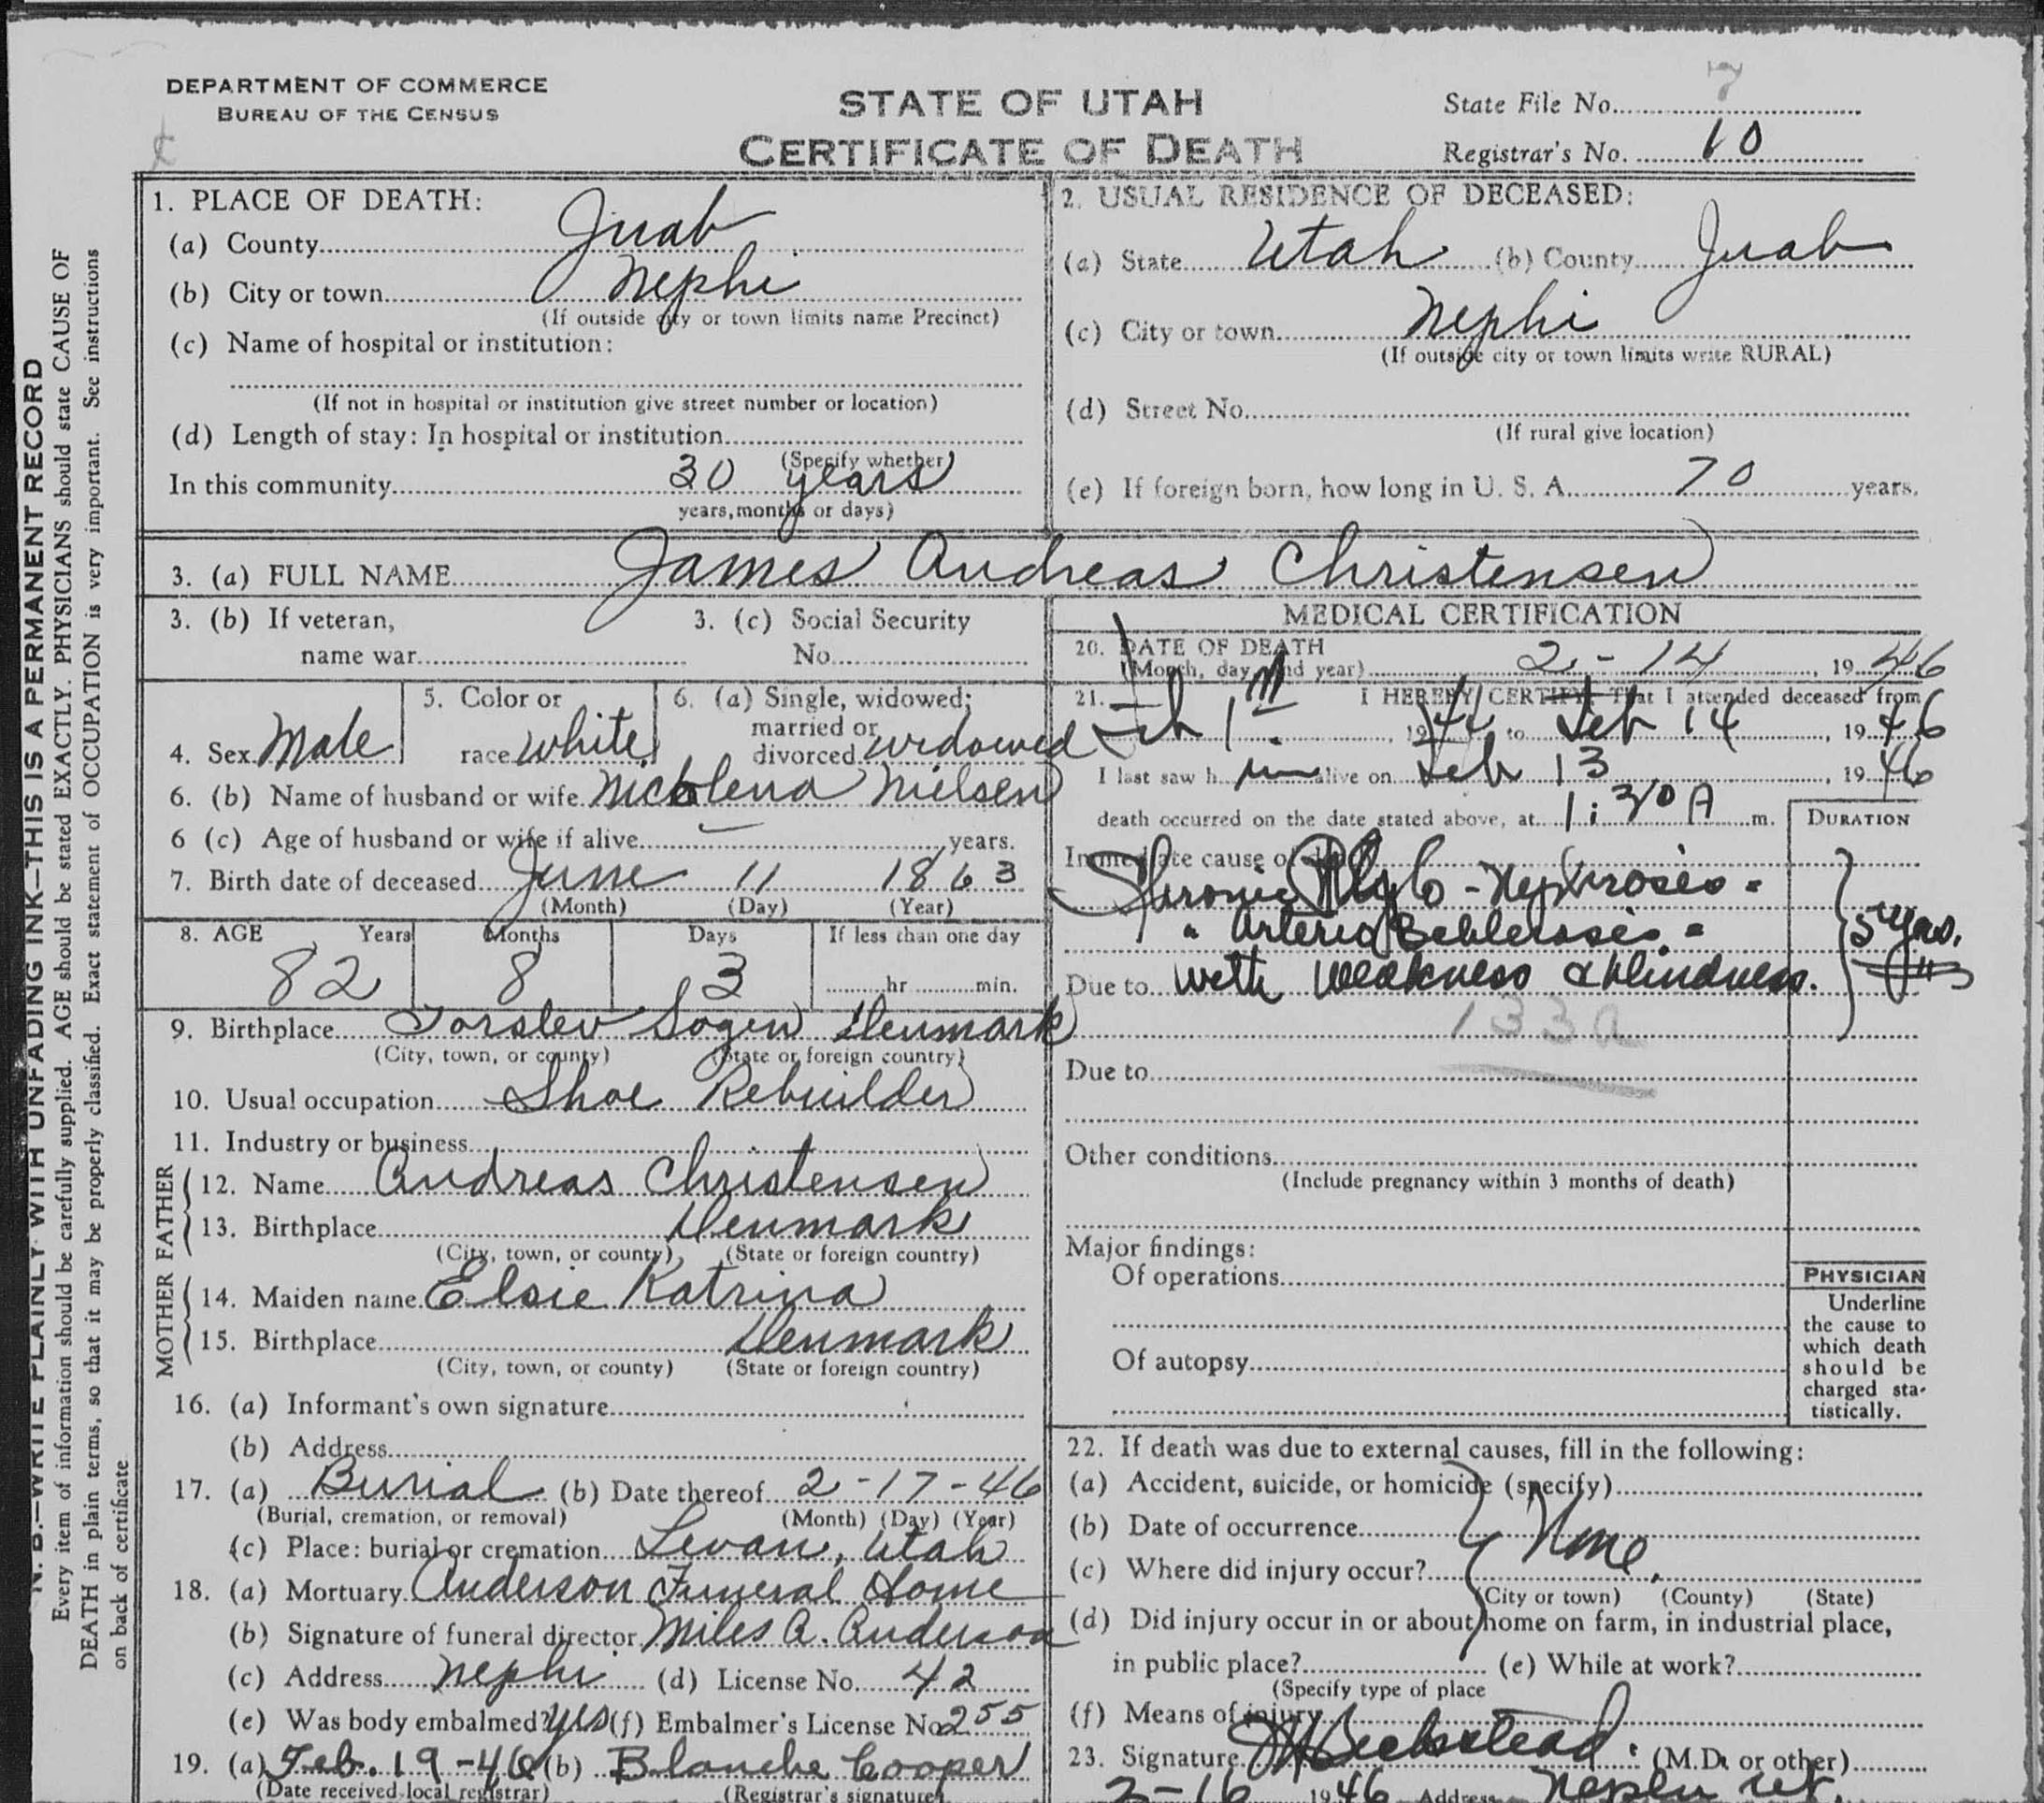 DEPARTMENT OF COMMERCE
BUREAU OF THE CENSUS
STATE OF UTAH
CERTIFICATE OF DEATH
State File No. 7
Registrar's No. 10
N. B.—WRITE PLAINLY WITH UNFADING INK—THIS IS A PERMANENT RECORD
Every item of information should be carefully supplied. AGE should be stated EXACTLY. PHYSICIANS should state CAUSE OF
DEATH in plain terms, so that it may be properly classified. Exact statement of OCCUPATION is very important. See instructions
on back of certificate
1. PLACE OF DEATH:
(a) County Juab
(b) City or town Nephi
(If outside city or town limits name Precinct)
(c) Name of hospital or institution:
(If not in hospital or institution give street number or location)
(d) Length of stay: In hospital or institution
(Specify whether
In this community 30 years
years, months or days)
2. USUAL RESIDENCE OF DECEASED:
(a) State Utah (b) County Juab
(c) City or town Nephi
(If outside city or town limits write RURAL)
(d) Street No.
(If rural give location)
(e) If foreign born, how long in U. S. A. 70 years.
3. (a) FULL NAME James Andreas Christensen
3. (b) If veteran,
name war
3. (c) Social Security
No.
4. Sex Male
5. Color or
race white
6. (a) Single, widowed;
married or
divorced widowed
6. (b) Name of husband or wife Nicolena Nielsen
6 (c) Age of husband or wife if alive — years.
7. Birth date of deceased June 11 1863
(Month) (Day) (Year)
8. AGE Years Months Days If less than one day
82 8 3 hr min.
9. Birthplace Torslev Sogen Denmark
(City, town, or county) (State or foreign country)
10. Usual occupation Shoe Rebuilder
11. Industry or business
FATHER
12. Name Andreas Christensen
13. Birthplace Denmark
(City, town, or county) (State or foreign country)
MOTHER
14. Maiden name Elsie Katrina
15. Birthplace Denmark
(City, town, or county) (State or foreign country)
16. (a) Informant's own signature
(b) Address
17. (a) Burial (b) Date thereof 2-17-46
(Burial, cremation, or removal) (Month) (Day) (Year)
(c) Place: burial or cremation Levan, Utah
18. (a) Mortuary Anderson Funeral Home
(b) Signature of funeral director Miles A. Anderson
(c) Address Nephi (d) License No. 42
(e) Was body embalmed? yes (f) Embalmer's License No. 255
19. (a) Feb. 19-46 (b) Blanche Cooper
(Date received local registrar) (Registrar's signature)
MEDICAL CERTIFICATION
20. DATE OF DEATH
(Month, day and year) 2-14, 1946
21. I HEREBY CERTIFY That I attended deceased from
Feb 1st, 19 to Feb 14, 1946
I last saw him alive on Feb 13, 1946
death occurred on the date stated above, at 1:30 A m.
DURATION
Immediate cause of
Chronic - Nephrosis -
" Arterio
Due to with weakness & blindness.
5 yrs.
133a
Due to
Other conditions
(Include pregnancy within 3 months of death)
Major findings:
Of operations
Of autopsy
PHYSICIAN
Underline
the cause to
which death
should be
charged sta-
tistically.
22. If death was due to external causes, fill in the following:
(a) Accident, suicide, or homicide (specify)
(b) Date of occurrence None.
(c) Where did injury occur?
(City or town) (County) (State)
(d) Did injury occur in or about home on farm, in industrial place,
in public place? (e) While at work?
(Specify type of place
(f) Means of injury
23. Signature (M.D. or other)
2-16 1946 Address Nephi Ut.